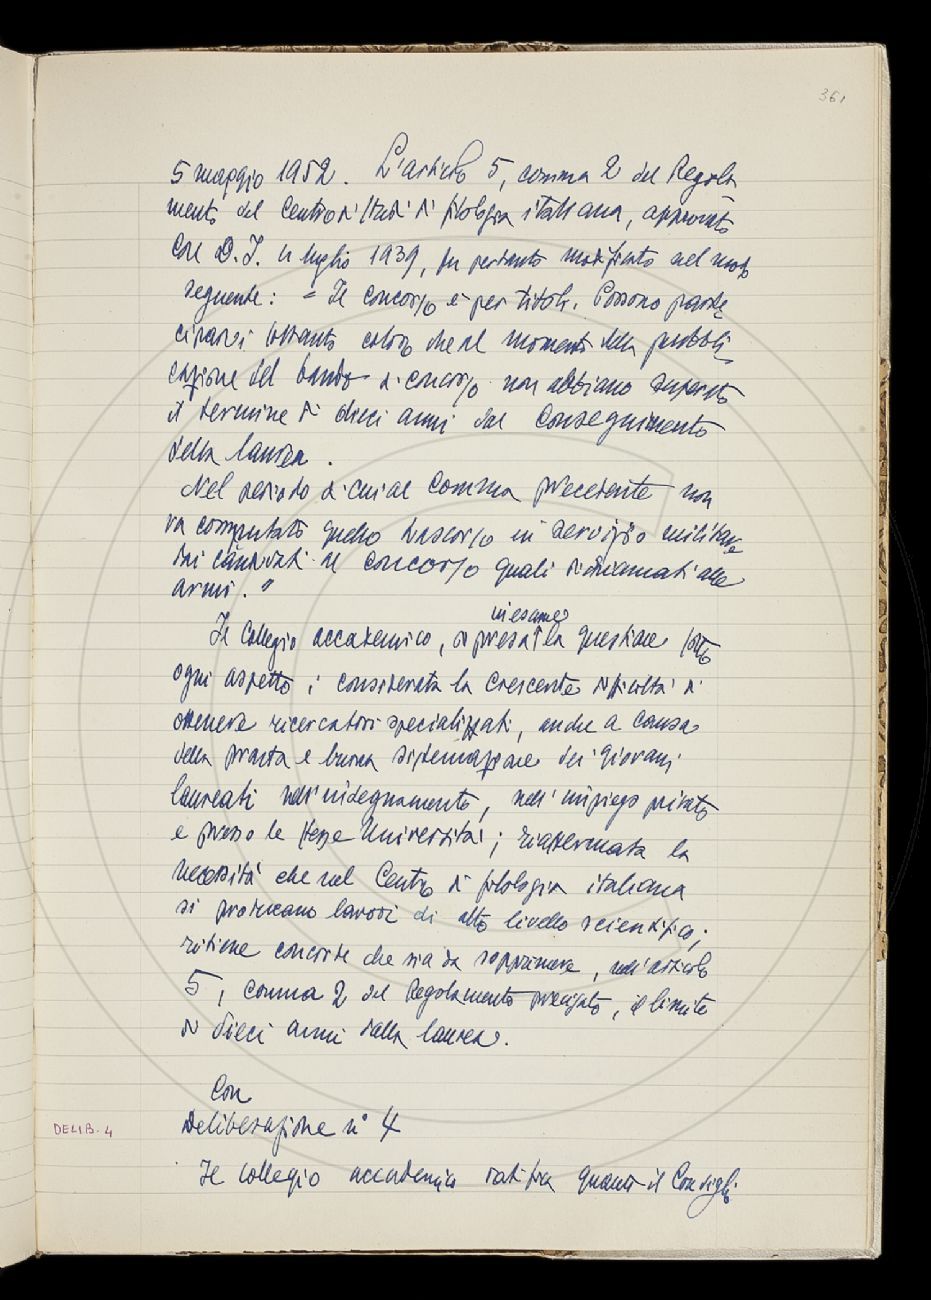 361
5 maggio 1952. L'articolo 5, comma 2 del Regola
mento del Centro di studi di filologia italiana, approvato
con D.I. 4 luglio 1939, fu pertanto modificato nel modo
seguente: = Il concorso è per titoli. Possono parte
ciparvi soltanto coloro che al momento della pubbli
cazione del bando di concorso non abbiano superato
il termine di dieci anni dal conseguimento
della laurea.
Nel periodo di cui al comma precedente non
va computato quello trascorso in servizio militare
dai candidati al concorso quali richiamati alle
armi."
in esame
Il Collegio accademico, presa la questione sotto
ogni aspetto; considerata la crescente difficoltà di
ottenere ricercatori specializzati, anche a causa
della pronta e buona sistemazione dei giovani
laureati nell'insegnamento, nell'impiego privato
e presso le stesse Università; riaffermata la
necessità che nel Centro di filologia italiana
si producano lavori di alto livello scientifico;
ritiene concorde che sia da sopprimere, nell'articolo
5, comma 2 del Regolamento precisato, il limite
di dieci anni dalla laurea.
Con
Deliberazione n° 4
DELIB. 4
Il collegio accademico ratifica quanto il Consiglio